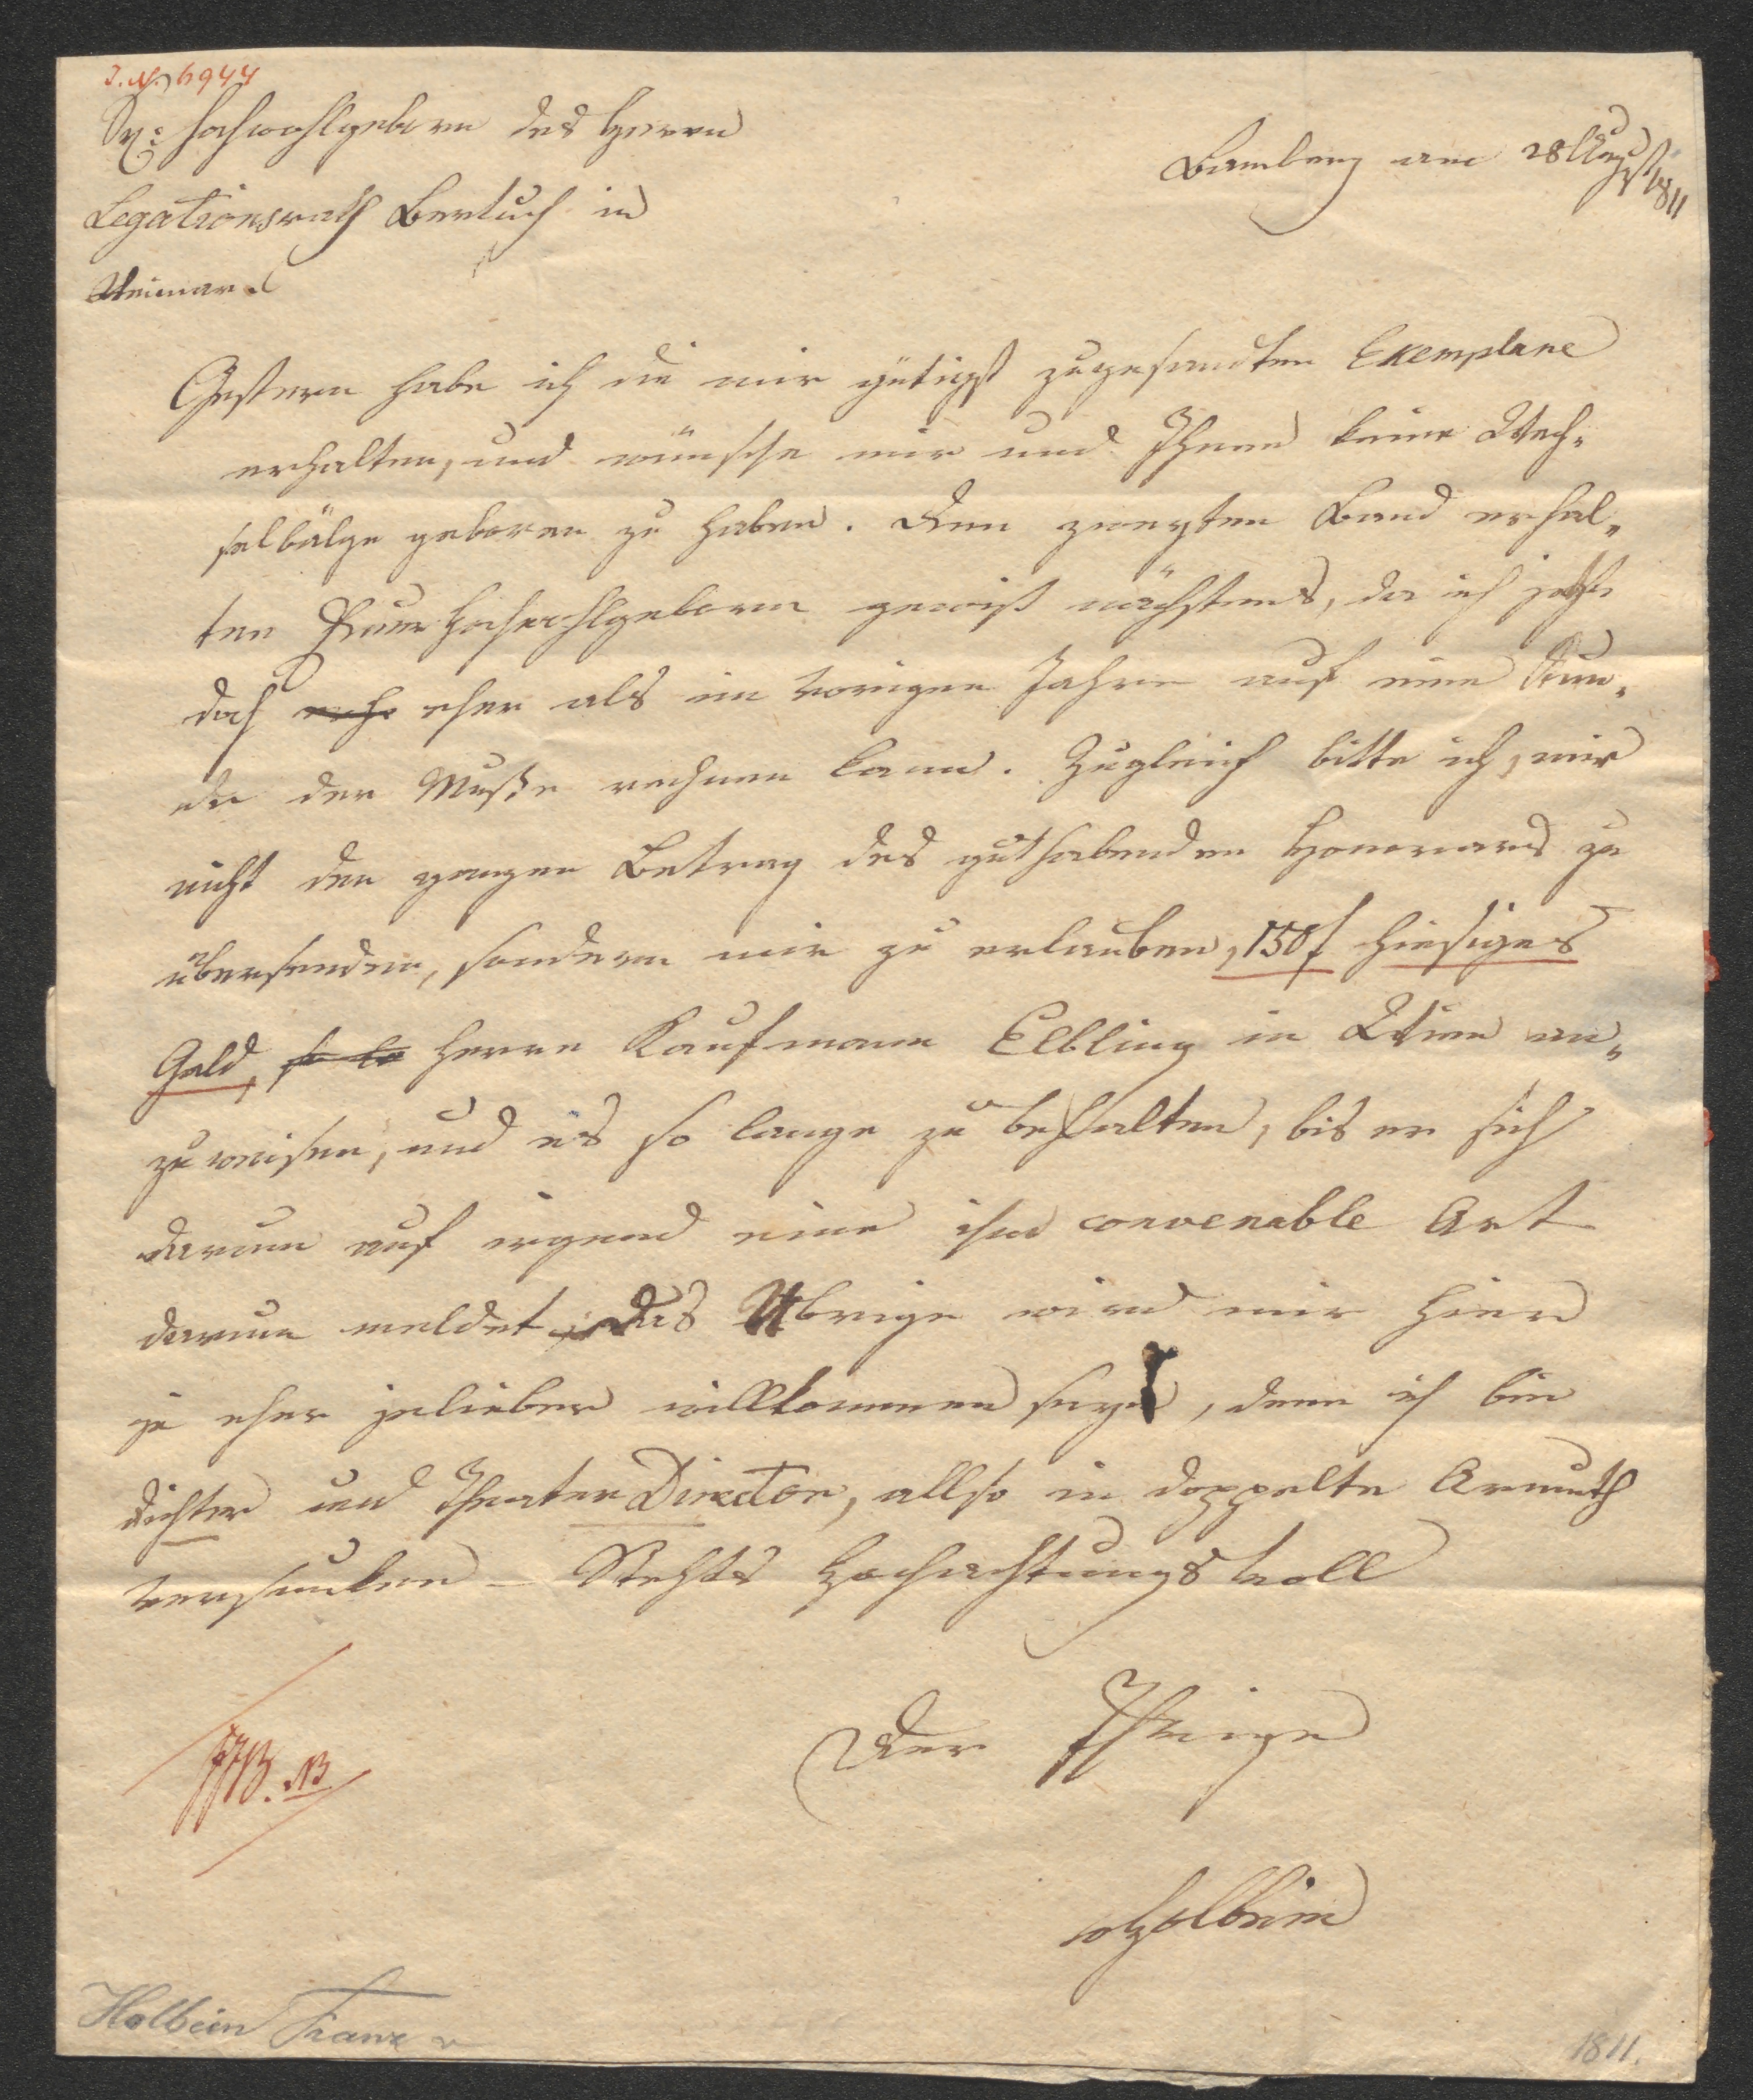 I.N. 6944
Sr: Hochwohlgeborn des Herrn
Legationsrath Bertuch in
Weimar.
Bamberg am 28 August 1811
Gestern habe ich die mir gütigst zugesandten Exemplare
erhalten, und wünsche mir und Ihnen keine Wech-
selbälge geboren zu haben. Den zweyten Band erhal-
ten Euer Hochwohlgeborn gewiß nächstens, da ich jetzt
doch eher als im vorigen Jahre auf eine Stun-
de der Muße rechnen kann. Zugleich bitte ich, mir
nicht den ganzen Betrag des guthabenden Honorars zu
übersenden, sondern mir zu erlauben, 150f hiesiges
Geld, Herrn Kaufmann Elbling in Wien an-
zuweisen, und es so lange zu behalten, bis er sich
darum auf irgend eine ihm convenable Art
darum meldet, das Übrige wird mir hier
je eher jelieber willkommen seyn, denn ich bin
Dichter und Theater Director, allso in doppelte Armuth
versunken – Stehts Hochachtungsvoll
Der Ihrige
Holbein
Holbein Franz v
1811.